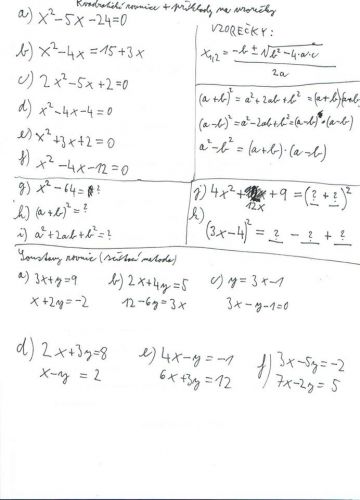 Kvadratické rovnice + příklady na vzorečky
a) x²-5x-24=0
b) x²-4x=15+3x
c) 2x²-5x+2=0
d) x²-4x-4=0
e) x²+3x+2=0
f) x²-4x-12=0
VZOREČKY:
x₁,₂ = (-b ± √(b²-4·a·c)) / 2a
(a+b)²=a²+2ab+b²=(a+b)(a+b)
(a-b)²=a²-2ab+b²=(a-b)·(a-b)
a²-b²=(a+b)·(a-b)
g) x²-64=?
h) (a+b)²=?
i) a²+2ab+b²=?
j) 4x²+12x+9=(?+?)²
k) (3x-4)²=?-?+?
Soustavy rovnic (sčítací metoda)
a) 3x+y=9
x+2y=-2
b) 2x+4y=5
12-6y=3x
c) y=3x-1
3x-y-1=0
d) 2x+3y=8
x-y=2
e) 4x-y=-1
6x+3y=12
f) 3x-5y=-2
7x-2y=5